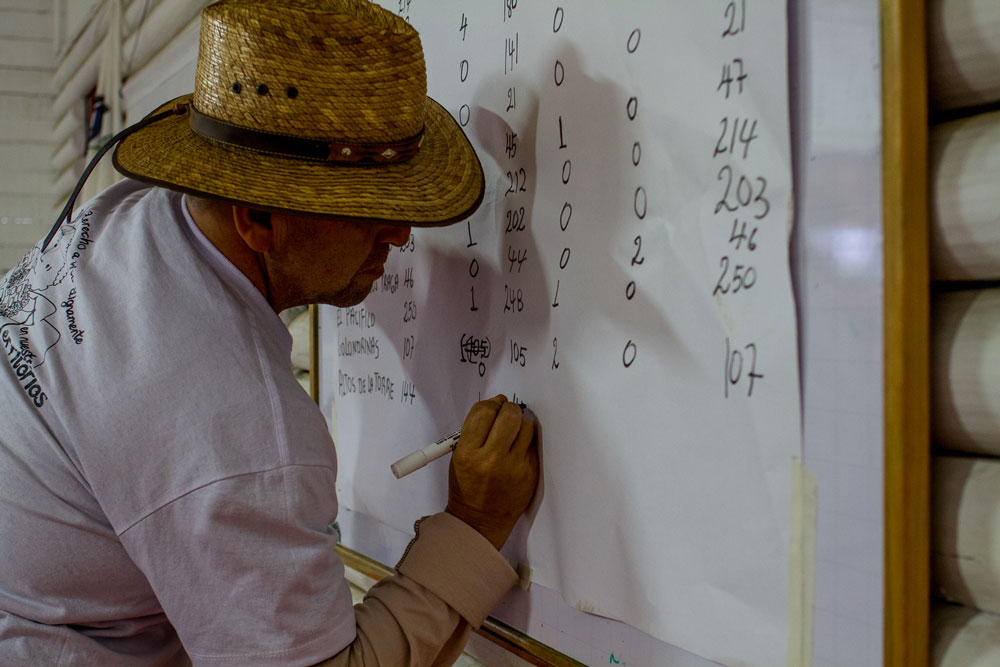 4 0 0 21
0 141 0 0 47
0 21 1 0 214
45 0 0 203
212 0 2 46
1 202 0 0 250
0 44
46 1 248 1
EL PACIFICO 250
GOLONDRINAS 107 0 105 2 0 107
ALTOS DE LA TORRE 144
Derecho a
dignamente
en nuestros
territorios